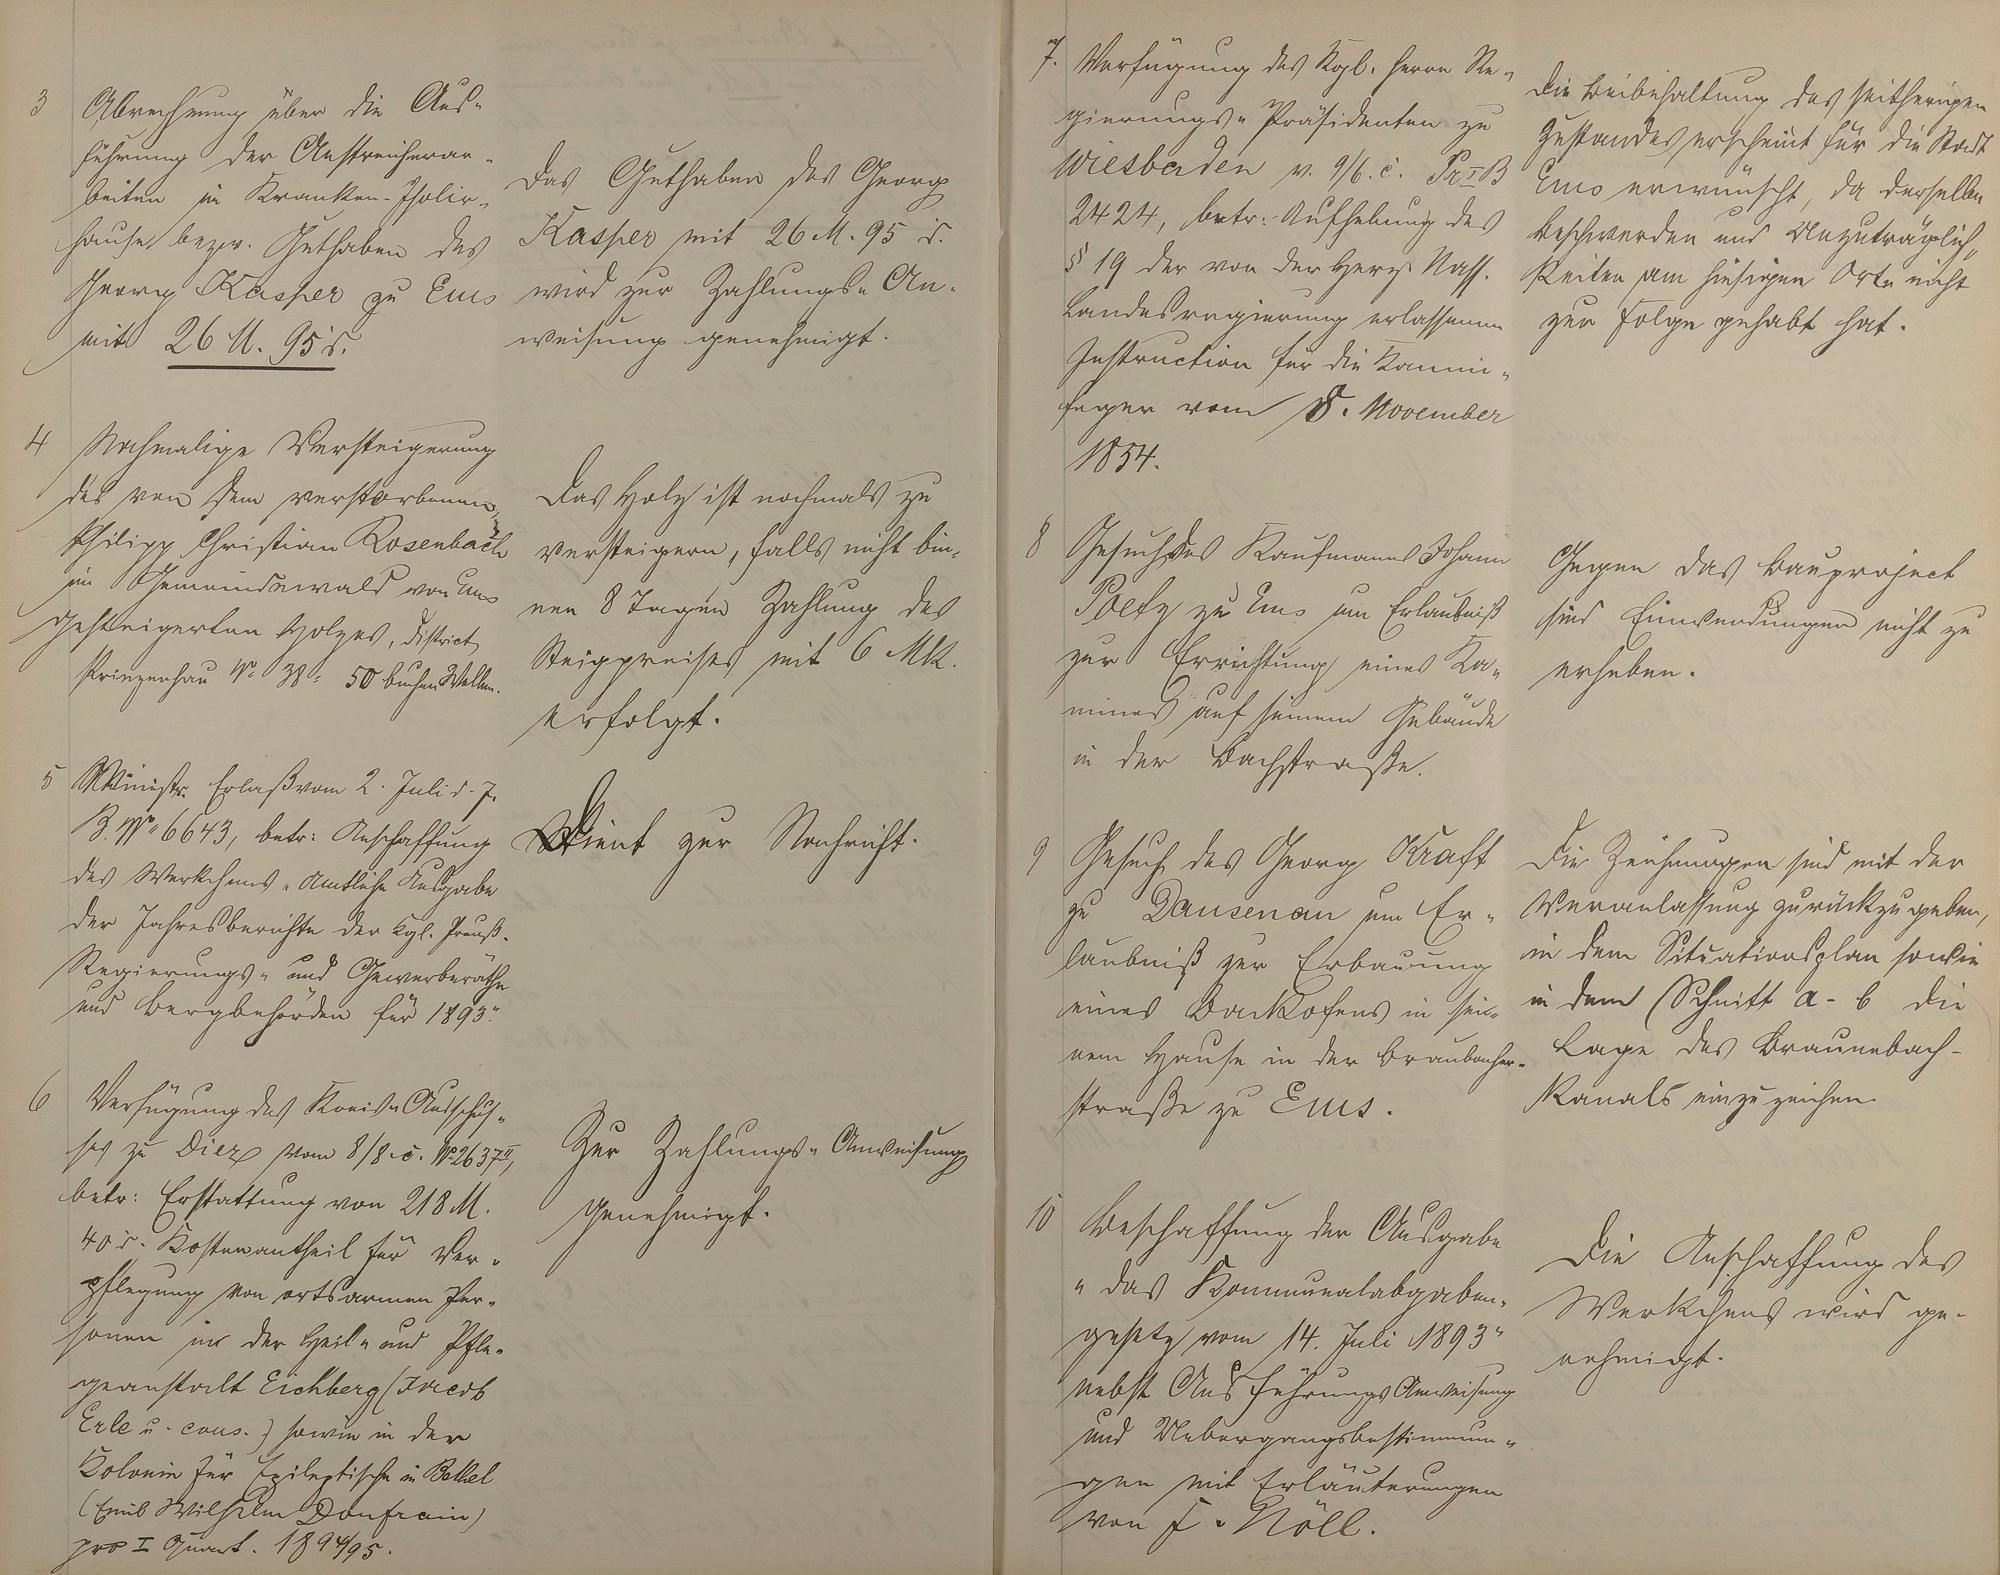 3
Abrechnung über die Aus-
führung der Anstreicherar-
beiten im Kranken-Isolir-
hause, bezw. Guthaben des
Georg Kasper zu Ems
mit 26 M. 95 d.
Das Guthaben des Georg
Kasper mit 26 M. 95 d.
wird zur Zahlungs-An-
weisung genehmigt.
4
Nochmalige Versteigerung
des von dem verstorbenen
Philipp Christian Rosenbach
im Gemeindewald von Ems
gesteigerten Holzes, District
Prinzenhau No 38: 50 buchen Wellen.
Das Holz ist nochmals zu
versteigern, falls nicht bin-
nen 8 Tagen Zahlung des
Steigpreises mit 6 Mk.
erfolgt.
5
Ministr. Erlaß vom 2. Juli d. J.
B. No 6643, betr: Anschaffung
des Werkchens „Amtliche Ausgabe
der Jahresberichte der Kgl. Preuß.
Regierungs- und Gewerberäthe
und Bergbehörden für 1893“
Dient zur Nachricht.
6
Verfügung des Kreis-Ausschus-
ses zu Diez vom 8/8. c. No 2637 II,
betr: Erstattung von 218 M.
40 d. Kostenantheil für Ver-
pflegung von ortsarmen Per-
sonen in der Heil- und Pfle-
geanstalt Eichberg (Jacob
Erle u. cons.) sowie in der
Kolonie für Epileptische in Bethel
(Emil Wilhelm Donfrain)
pro I Quart. 1894/95.
Zur Zahlungs-Anweisung
genehmigt.
7.
Verfügung des Kgl. Herrn Re-
gierungs-Präsidenten zu
Wiesbaden v. 9/6. c. Pr I B
2424, betr: Aufhebung des
§ 19 der von der Herz. Nass.
Landesregierung erlassenen
Instruction für die Kamin-
feger vom 8. November
1854.
Die Beibehaltung des seitherigen
Zustandes erscheint für die Stadt
Ems erwünscht, da derselbe
Beschwerden und Unzuträglich-
keiten am hiesigen Orte nicht
zur Folge gehabt hat.
8
Gesuch des Kaufmanns Johann
Poetz zu Ems um Erlaubniß
zur Errichtung eines Ka-
mines auf seinem Gebäude
in der Bachstraße.
Gegen das Bauproject
sind Einwendungen nicht zu
erheben.
9
Gesuch des Georg Kraft
zu Dausenau um Er-
laubniß zur Erbauung
eines Backofens in sei-
nem Hause in der Braubacher-
straße zu Ems.
Die Zeichnungen sind mit der
Veranlassung zurückzugeben,
in dem Situationsplan sowie
in dem Schnitt a-b die
Lage des Braunebach-
Kanals einzuzeichen.
10
Beschaffung der Ausgabe
„das Kommunalabgaben-
gesetz vom 14. Juli 1893“
nebst Ausführungs Anweisung
und Uebergangsbestimmun-
gen mit Erläuterungen
von F. Nöll.
Die Anschaffung des
Werkchens wird ge-
nehmigt.